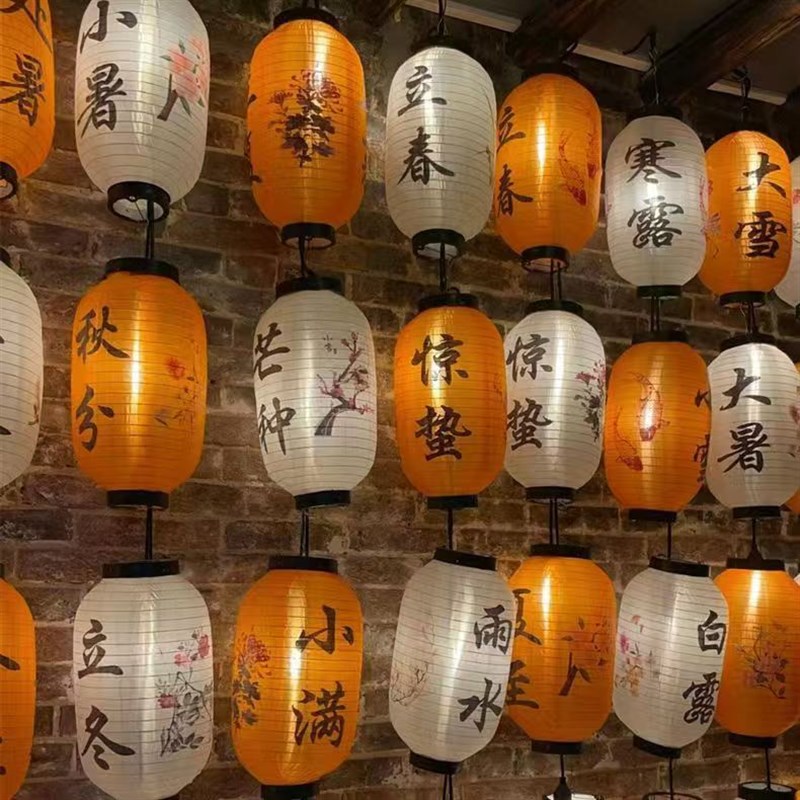 暑
小暑
立春
立春
寒露
大雪
秋分
芒种
惊蛰
惊蛰
小雪
大暑
立冬
小满
雨水
夏至
白露